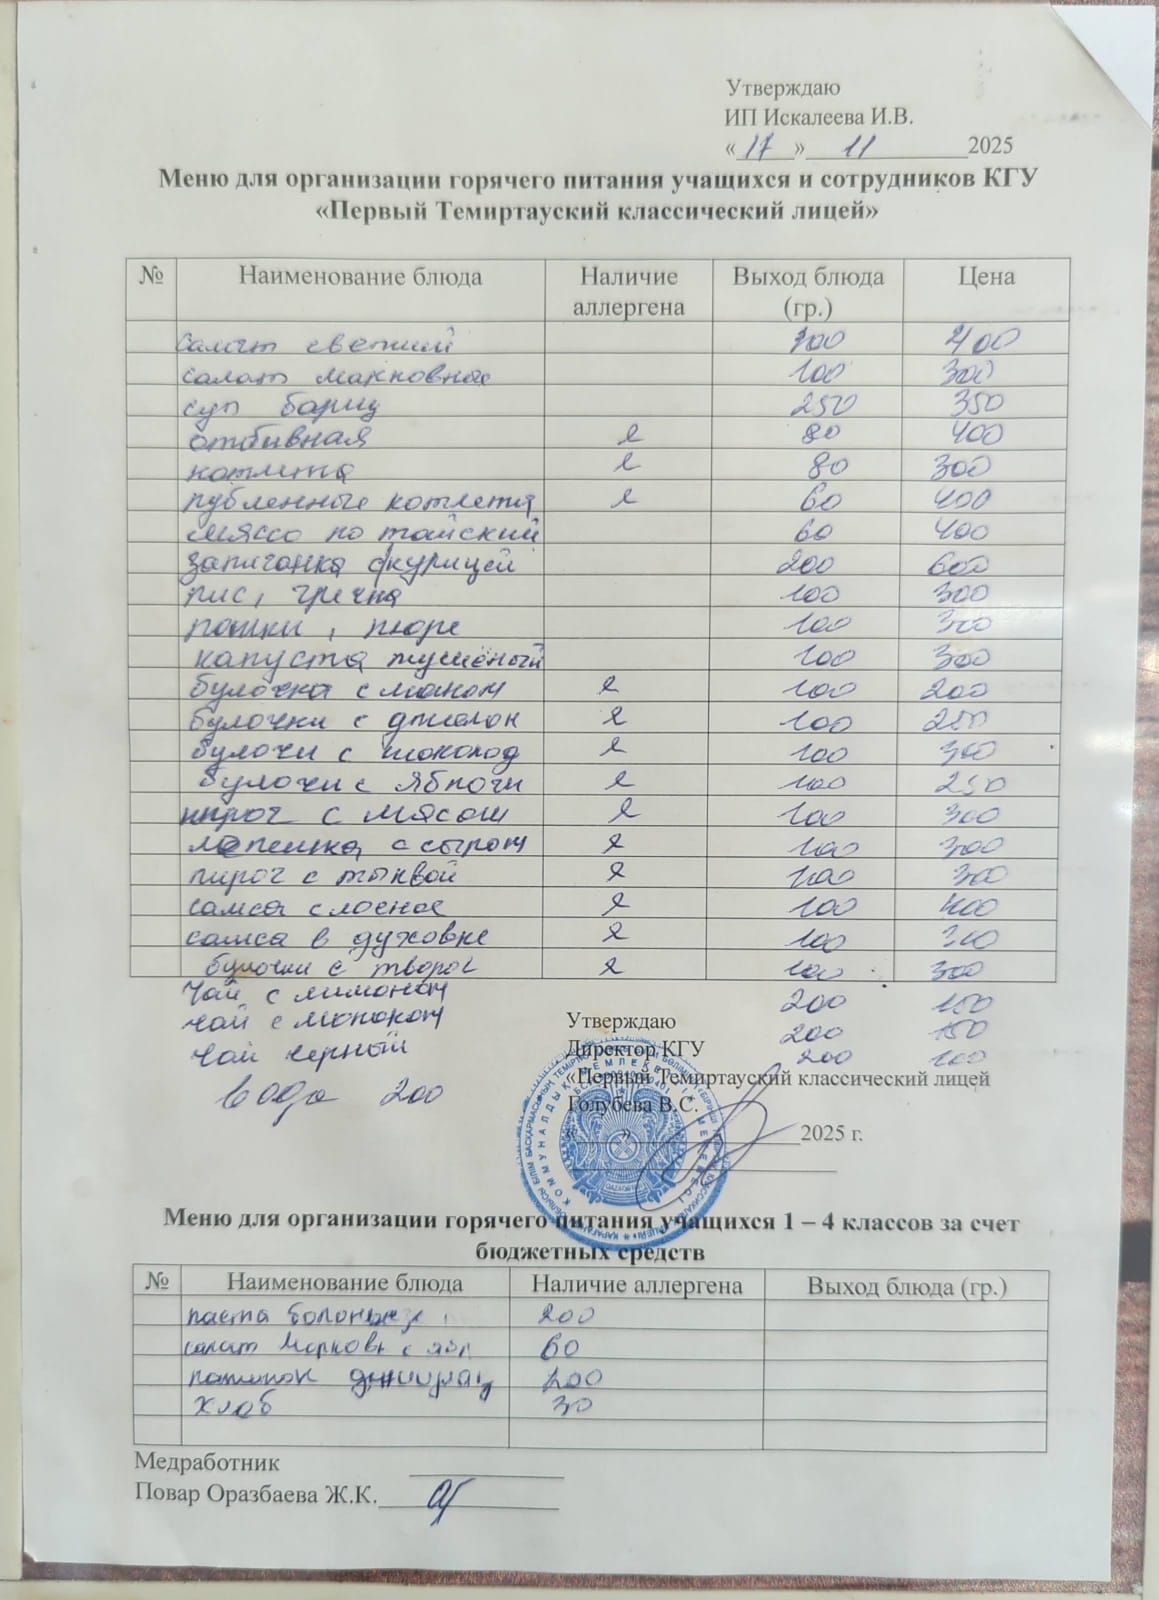 Утверждаю
ИП Искалеева И.В.
« 17 » 11 2025
Меню для организации горячего питания учащихся и сотрудников КГУ
«Первый Темиртауский классический лицей»
№ Наименование блюда Наличие аллергена Выход блюда (гр.) Цена
салат свежий 100 400
салат марковные 100 300
суп борщ 250 350
отбивная я 80 400
котлета я 80 300
рубленные котлеты я 60 400
мяссо по тайский 60 400
запиганка с курицей 200 600
рис, гречка 100 300
рошки, пюре 100 300
капуста тушёный 100 300
булочка с маком я 100 200
булочки с джемом я 100 250
булочи с шоколод я 100 300
булочи с яблочи я 100 250
пирог с мясом я 100 300
лепешка с сыром я 100 300
пирог с тыквой я 100 300
самса слоеное я 100 400
самса в духовке я 100 300
булочки с творог я 100 300
Чай с лимоном 200 150
чай с молоком 200 150
чай черный 200 100
вода 200
Утверждаю
Директор КГУ
«Первый Темиртауский классический лицей
Голубева В.С.
« » 2025 г.
Меню для организации горячего питания учащихся 1 – 4 классов за счет
бюджетных средств
№ Наименование блюда Наличие аллергена Выход блюда (гр.)
паста болоньезе 200
салат Морковь с ябл 60
200
хлеб 30
Медработник
Повар Оразбаева Ж.К.